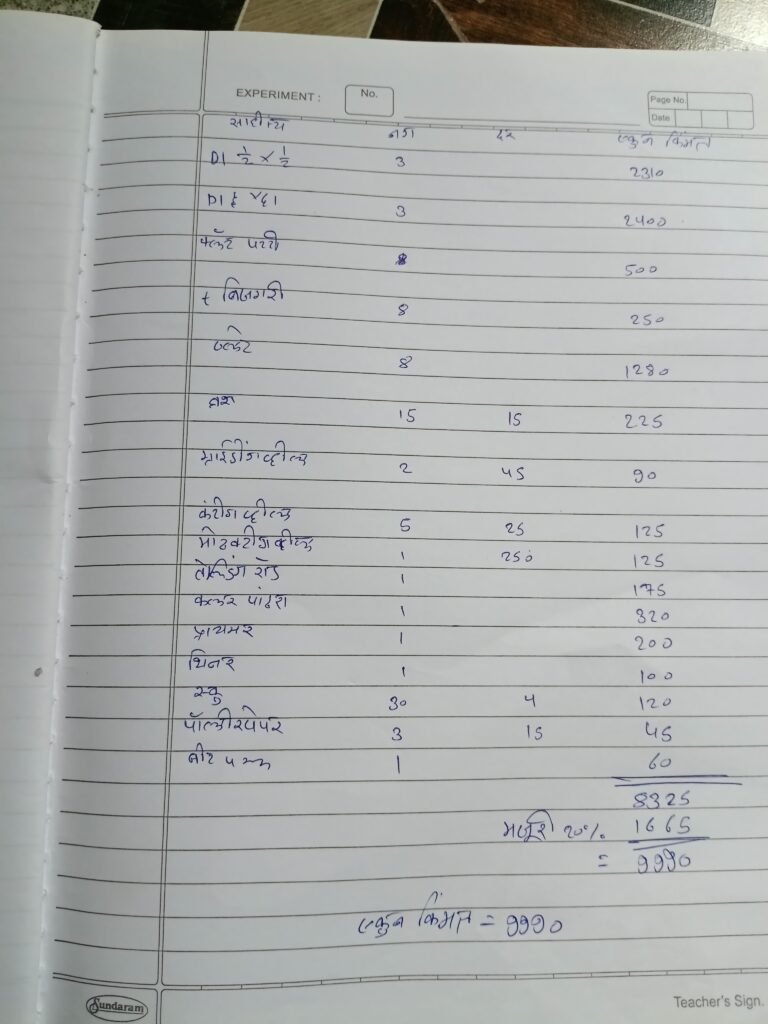 EXPERIMENT : No.
Page No.
Date
साहीत्य नग दर एकुन किंमत
D1 1/2 × 1/2 3 2310
D1 3 2400
फ्लॅट पट्टी 8 500
t बिजागरी 8 250
प्लेट 8 1280
15 15 225
ग्राईडींग व्हील्स 2 45 90
कटींग व्हील्स 5 25 125
1 250 125
वेल्डिंग रॉड 1 175
कलर पांढरा 1 320
प्रायमर 1 200
थिनर 1 100
स्क्रु 30 4 120
पॉलीश पेपर 3 15 45
1 60
8325
मजुरी 20% 1665
= 9990
एकुन किंमत = 9990
Sundaram Teacher's Sign.